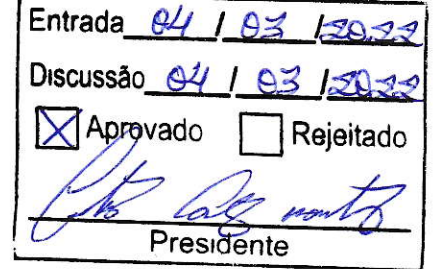 Entrada 04 / 03 / 2022
Discussão 04 / 03 / 2022
☒ Aprovado ☐ Rejeitado
Presidente